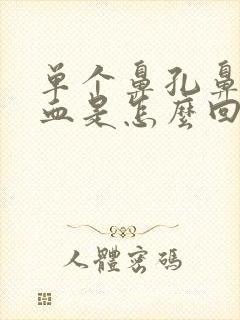 单个鼻孔鼻
血是怎麼回
人體密碼